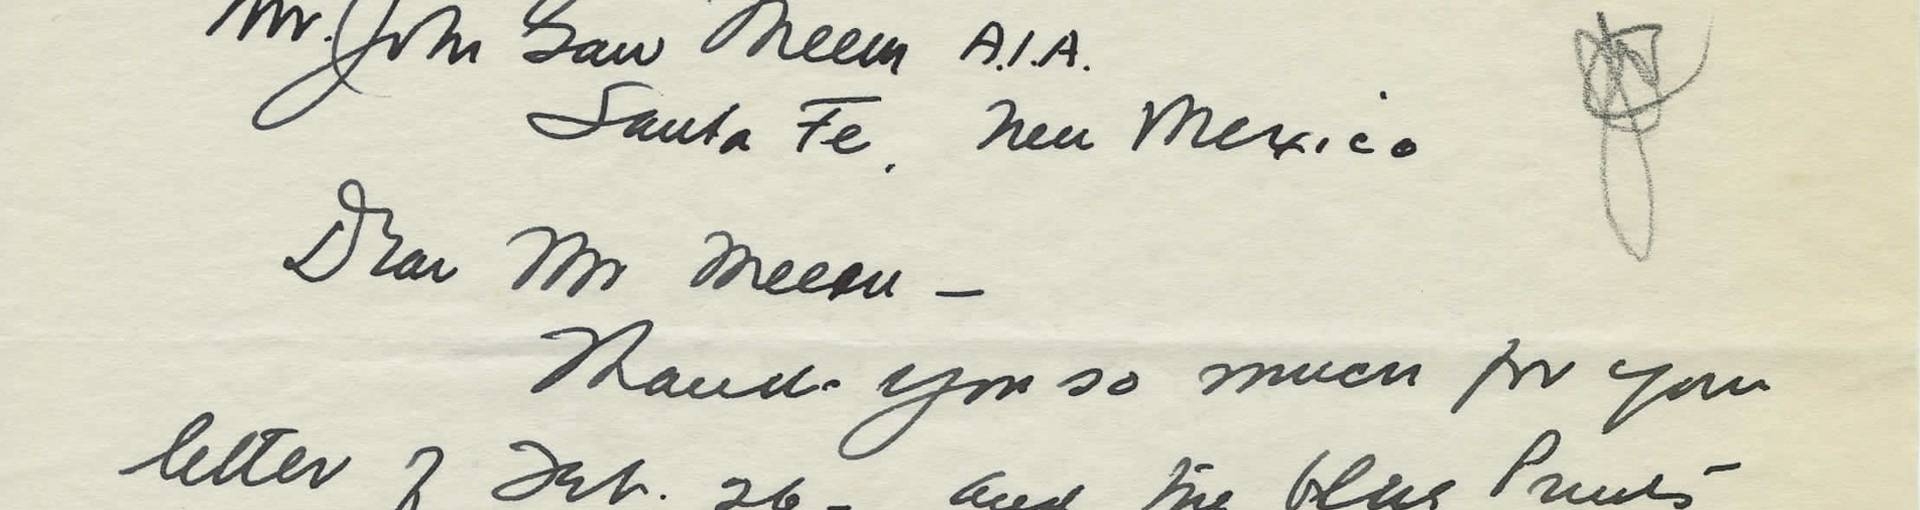 Mr. John Gaw Meem A.I.A.
Santa Fe, New Mexico
Dear Mr Meem —
Thank you so much for your
letter of Feb. 26 - and the Blue Prints -